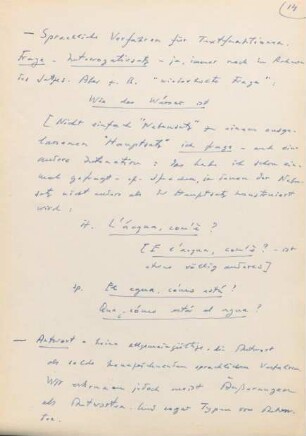 14
— Sprachliche Verfahren für Textfunktionen.
Frage - Interrogativsatz - ja, immer noch im Rahmen
des Satzes. Aber z. B. "wiederholte Frage":
Wie das Wasser ist
[Nicht einfach "Nebensatz" zu einem ausge-
lassenen Hauptsatz ich frage - und eine
andere Intonation: Das habe ich schon ein-
mal gefragt - cf. Spa, in denen der Neben-
satz nicht anders als der Hauptsatz konstruiert
wird:
it. L'acqua, com'è?
[E l'acqua, com'è? - ist
etwas völlig anderes]
sp. El agua, cómo está?
Que, cómo está el agua!
— Antwort - keine allgemeingültige, die Antwort
als solche kennzeichnenden sprachlichen Verfahren.
Wir erkennen jedoch meist Äußerungen
als Antworten. Und sogar Typen von Antwor-
ten.